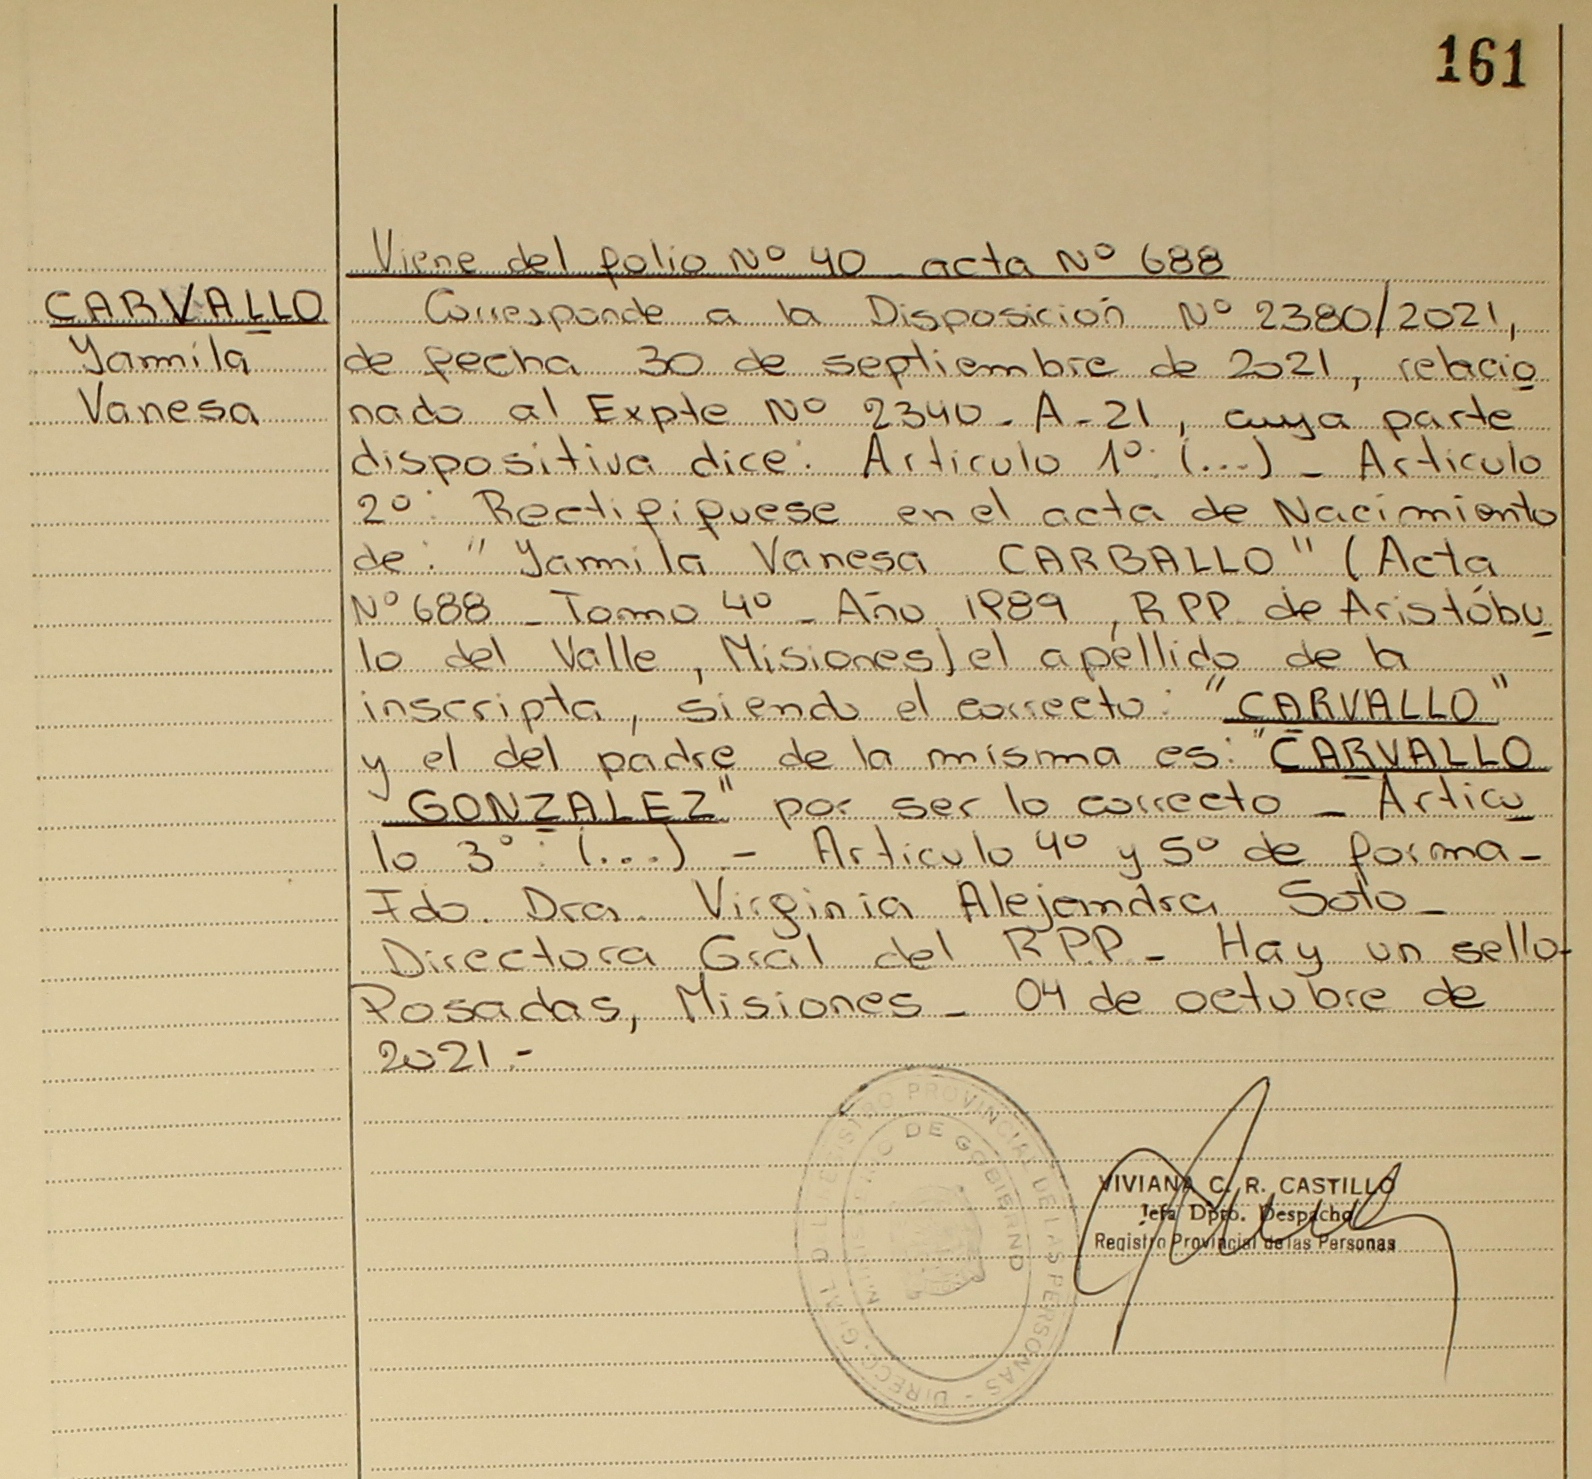 161
Viene del folio Nº 40 acta Nº 688
CARVALLO
Yamila
Vanesa
Corresponde a la Disposición Nº 2380/2021,
de fecha 30 de septiembre de 2021, relacio
nado al Expte Nº 2340-A-21, cuya parte
dispositiva dice: Articulo 1º: (...) - Articulo
2º: Rectifífuese en el acta de Nacimiento
de: "Yamila Vanesa CARBALLO" (Acta
Nº 688 - Tomo 4º - Año 1989, RPP. de Aristóbu
lo del Valle, Misiones) el apellido de la
inscripta, siendo el correcto: "CARVALLO"
y el del padre de la misma es: "CARVALLO
GONZALEZ" por ser lo correcto - Articu
lo 3º: (...) - Articulo 4º y 5º de forma -
Fdo. Dra. Virginia Alejandra Soto -
Directora Gral del R.P.P. - Hay un sello -
Posadas, Misiones - 04 de octubre de
2021.-
DIRECC. GRAL DEL REGISTRO PROVINCIAL DE LAS PERSONAS -
MINISTERIO DE GOBIERNO
VIVIANA C. R. CASTILLO
Jefa Dpto. Despacho
Registro Provincial de las Personas